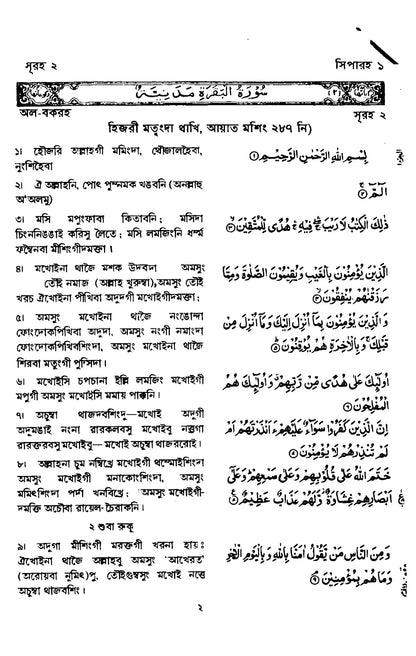 সূরহ ২
সিপারহ ১
سُورَةُ الْبَقَرَةِ مَدَنِيَّةٌ
অল-বকরহ
সূরহ ২
হিজরী মতুংদা থাখি, আয়াত মশিং ২৮৭ নি)
১। হৌজরি অল্লাহগী মমিংদা, খৌজালহৈবা,
নুংশিহৈবা
بِسْمِ اللهِ الرَّحْمٰنِ الرَّحِيْمِ ۝١
২। ঐ অল্লাহনি, পোৎ পুম্নমক খঙবনি (অনল্লাহু
অ'অলমু)
الٓمّٓ ۝٢
৩। মসি মপুংফাবা কিতাবনি; মসিদা
চিংননিঙাই করিসু লৈতে; মসি লমজিংনি ধর্ম্ম
ফম্বৈনবা মীশিংগীদমক্তা।
ذٰلِكَ الْكِتٰبُ لَا رَيْبَ ۛ فِيْهِ ۛ هُدًى لِّلْمُتَّقِيْنَ ۝٣
৪। মখোইনা থাজৈ মশক উদবদা অমসুং
তৌই নমাজ (অল্লাহ খুরুম্বা), অমসুং তৌই
খরচ ঐখোইনা পীখিবা অদুদগী মখোইগীদমক্তা;
الَّذِيْنَ يُؤْمِنُوْنَ بِالْغَيْبِ وَيُقِيْمُوْنَ الصَّلٰوةَ وَمِمَّا
رَزَقْنٰهُمْ يُنْفِقُوْنَ ۝٤
৫। অমসুং মখোইনা থাজৈ নংঙোন্দা
ফোংদোকপিখিবা অদুদা, অমসুং নংগী নমাংদা
ফোংদোকপিখিবশিংদা, অমসুং মখোইনা থাজৈ
শিরবা মতুংগী পুন্সিদা।
وَالَّذِيْنَ يُؤْمِنُوْنَ بِمَآ اُنْزِلَ اِلَيْكَ وَمَآ اُنْزِلَ مِنْ
قَبْلِكَ ۚ وَبِالْاٰخِرَةِ هُمْ يُوْقِنُوْنَ ۝٥
৬। মখোইসি চপচানা ইল্লি লমজিং মখোইগী
মপুগী অমসুং মখোইসি মমায় পাকনি।
اُولٰٓئِكَ عَلٰى هُدًى مِّنْ رَّبِّهِمْ ۙ وَاُولٰٓئِكَ هُمُ
الْمُفْلِحُوْنَ ۝٦
৭। অচুম্বা থাজদবশিংদু—মখোই অদুগী
অদুমঙাই নংনা রারকলবসু মখোইবু নত্ত্রগা
রারক্তরবসু মখোইবু—মখোই অচুম্বা থাজররোই।
اِنَّ الَّذِيْنَ كَفَرُوْا سَوَآءٌ عَلَيْهِمْ ءَاَنْذَرْتَهُمْ اَمْ
لَمْ تُنْذِرْهُمْ لَا يُؤْمِنُوْنَ ۝٧
৮। অল্লাহনা চুম নম্বিখ্রে মখোইগী থম্মোইশিংদা
অমসুং মখোইগী মনাকোংশিংদা, অমসুং
মমিৎশিংদা পর্দা খনবিখ্রে; অমসুং মখোইগী-
দমক্তি অচৌবা রায়েল-চৈরাকনি।
خَتَمَ اللهُ عَلٰى قُلُوْبِهِمْ وَعَلٰى سَمْعِهِمْ ۖ وَعَلٰٓى
اَبْصَارِهِمْ غِشَاوَةٌ ۖ وَّلَهُمْ عَذَابٌ عَظِيْمٌ ۝٨
২ শুবা রুকূ
৯। অদুগা মীশিংগী মরক্তগী খরনা হায়ঃ
ঐখোইনা থাজৈ অল্লাহবু অমসুং 'আখেরত'
(অরোয়বা নুমিৎ)পু, তৌইগুম্বসুং মখোই নত্তে
অচুম্বা থাজবশিং।
وَمِنَ النَّاسِ مَنْ يَّقُوْلُ اٰمَنَّا بِاللهِ وَبِالْيَوْمِ الْاٰخِرِ
وَمَا هُمْ بِمُؤْمِنِيْنَ ۝٩
২